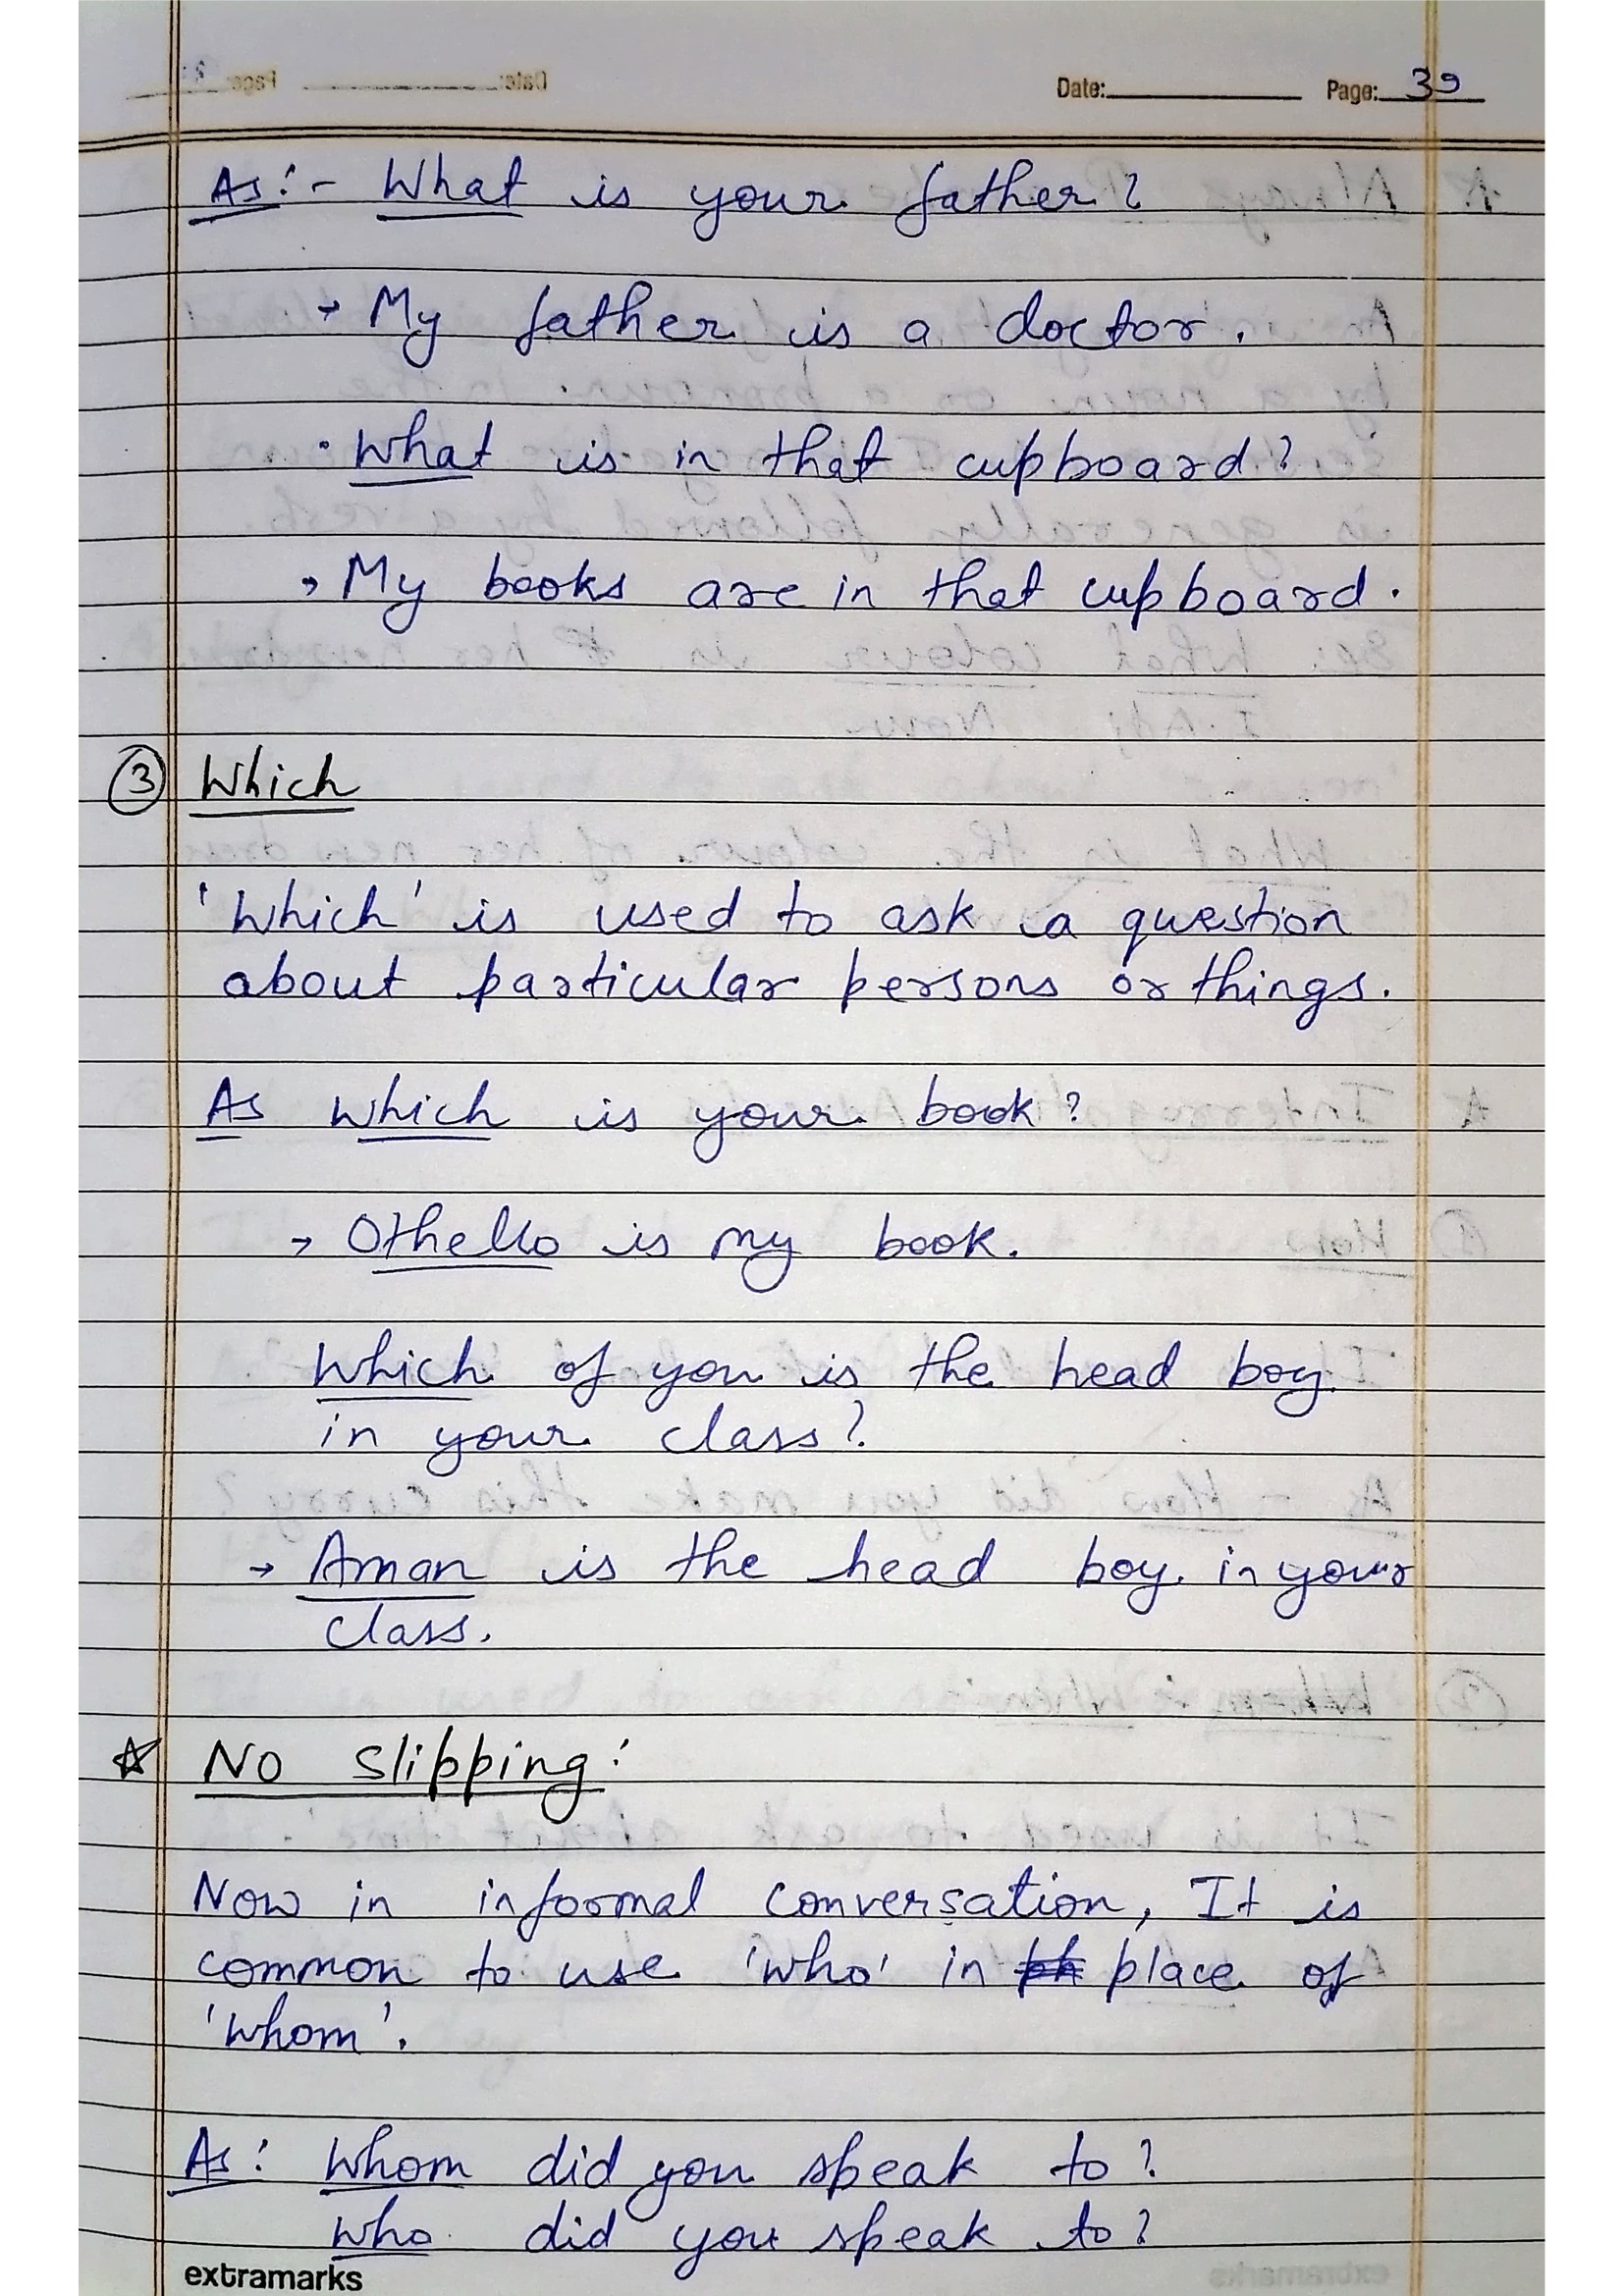 Date: Page: 39
As:- What is your father?
→ My father is a doctor.
· What is in that cupboard?
→ My books are in that cupboard.
③ Which
'Which' is used to ask a question
about particular persons or things.
As Which is your book?
→ Othello is my book.
Which of you is the head boy
in your class?
→ Aman is the head boy in your
class.
☆ No slipping:
Now in informal conversation, It is
common to use 'who' in place of
'whom'.
As: Whom did you speak to?
Who did you speak to?
extramarks